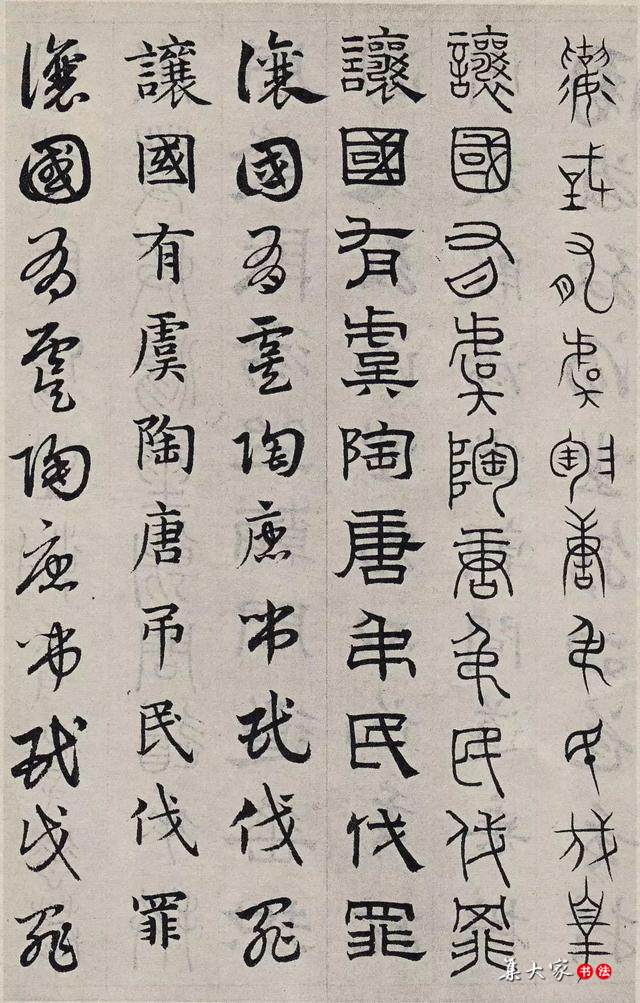 讓國有虞陶唐弔民伐罪
讓國有虞陶唐弔民伐罪
讓國有虞陶唐弔民伐罪
讓國有虞陶唐弔民伐罪
讓國有虞陶唐吊民伐罪
讓國有虞陶唐弔民伐罪
集大家书法